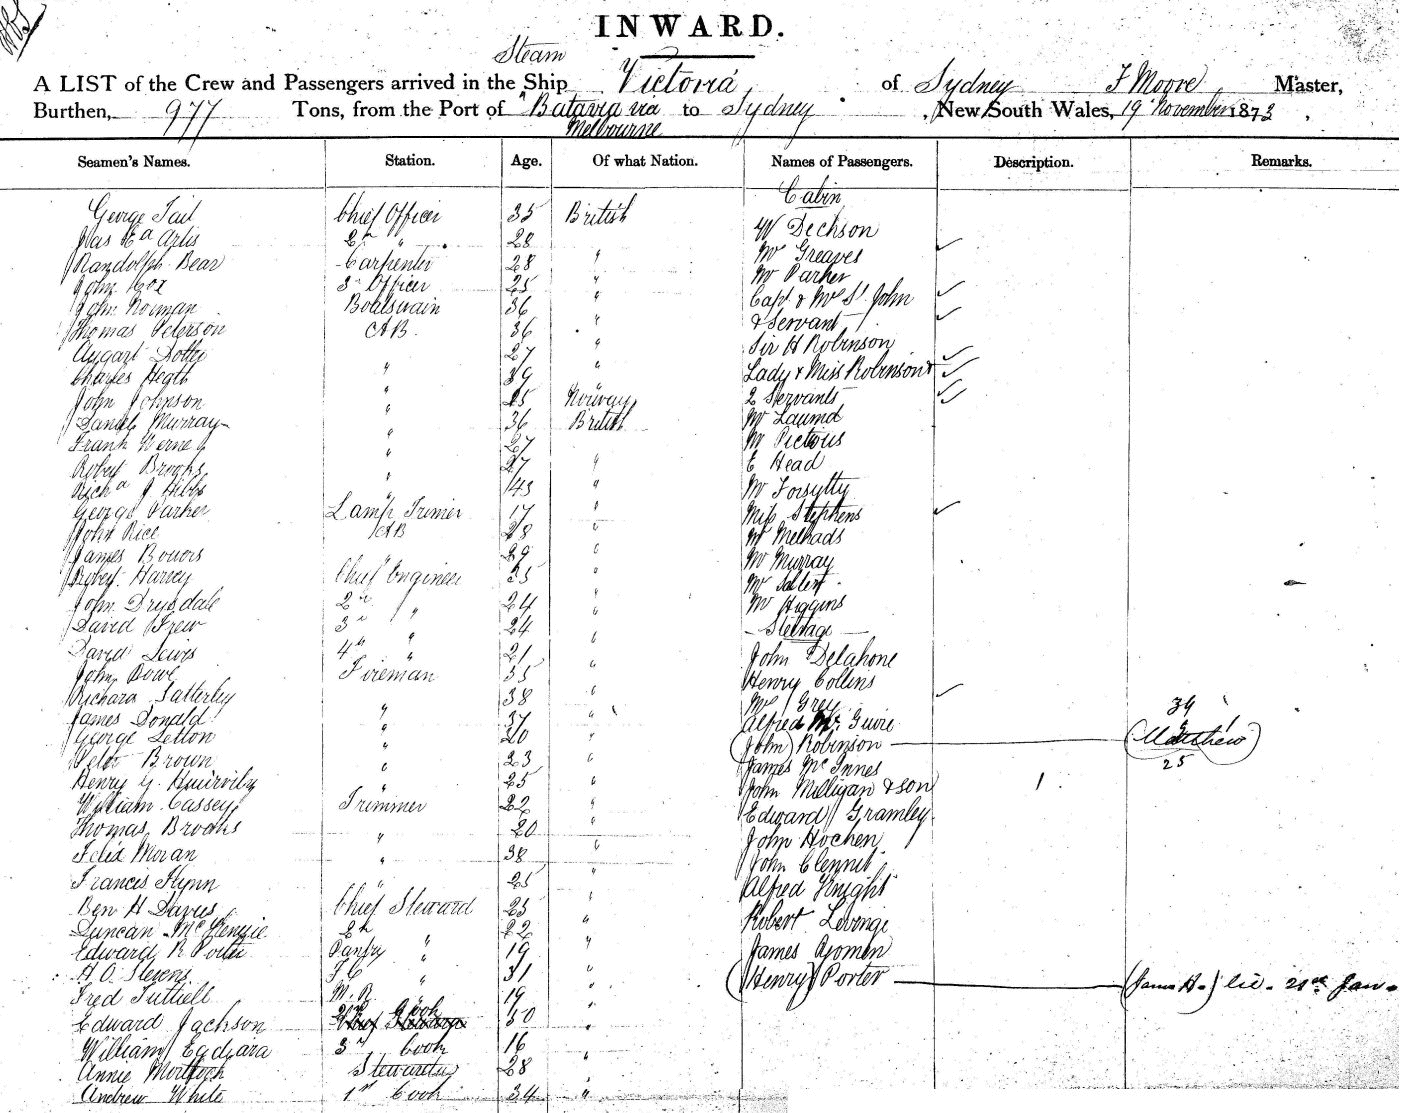 INWARD.
Steam
A LIST of the Crew and Passengers arrived in the Ship Victoria of Sydney F Moore Master,
Burthen, 977 Tons, from the Port of Batavia via to Sydney , New South Wales, 19 November 1873
Melbourne
Seamen's Names. Station. Age. Of what Nation. Names of Passengers. Description. Remarks.
Cabin
George Tait Chief Officer 35 British
W Dechson
28
Mr Greaves
Randolph Bear Carpenter 28 "
Mr Parker
John Cox 3rd Officer 25 "
Capt & Mrs St John
John Norman Boatswain 36 "
& Servant
Thomas Peterson AB 36 "
Sir H Robinson
27 "
Lady & Miss Robinson &
Charles Heath " 39 "
2 Servants
John Johnson " 25 Norway
Mr
Daniel Murray " 36 British
Mr
Frank " 27
E Head
Robt Brooks " 27 "
Richd J Hibbs " 43 "
Mr Forsytty
George Parker Lamp Trimer 17 "
Miss Stephens
John Rice AB 28 "
Mr
James 29 "
Mr Murray
Robt Harvey Chief Engineer 35 "
Mr
John Drysdale 2nd " 24 "
Mr Higgins
David Frew 3rd " 24 "
Steerage
David Lewis 4th " 21 "
John Delahone
John Dowe Fireman 35 "
Henry Collins
Richard Satterley 38 "
Mrs Grey
James Donald " 37 "
Alfred Mc Guire 34
George Letton " 20 "
(John) Robinson (Matthew)
25
Peter Brown " 23 "
James McInnes
Henry Y " 25 "
John Milligan & son 1
William Cassey Trimmer 22 "
Edward Gramley
Thomas Brooks " 20 "
John Hochen
Felix Moran " 38 "
John Clennit
Francis Flynn " 25 "
Alfred Knight
Ben H Davies Chief Steward 25 "
Robert Levinge
Duncan McKenzie 2nd 22 "
Edward R Porter Pantry " 19 "
James
H. A. Stevens F C " 31 "
(Henry) Porter (James H.) lic. 21st Jan.
Fred Tuttiell M. R " 19 "
Edward Jackson 2nd Cook 50 "
William 3rd Cook 16 "
Annie Mortlock Stewardess 28
Andrew White 1st Cook 34 "